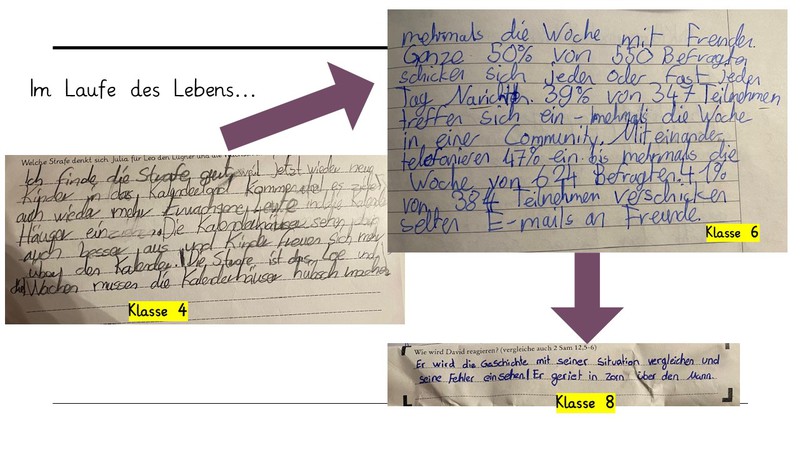 Im Laufe des Lebens...
Welche Strafe denkt sich Julia für Leo den Lügner und die
Ich finde die Strafe gut weil jetzt wieder neue
Kinder in das Kalenderland kommen und es
auch wieder mehr Erwachsene Leute in die Kalender
Häuser ein Die Kalenderhäuser sehn
auch besser aus und Kinder freuen sich mehr
über den Kalender. Die Strafe ist das Leo und
Wochen mussen die Kalenderhäuser hübsch machen
Klasse 4
mehrmals die Woche mit Freunden.
Ganze 50% von 550 Befragten
schicken sich jeden oder fast jeden
Tag Narichten. 39% von 347 Teilnehmen
treffen sich ein - mehrmals die Woche
in einer Community. Miteinander
telefonieren 47% ein bis mehrmals die
Woche von 624 Befragten. 41%
von 384 Teilnehmen verschicken
selten E-mails an Freunde.
Klasse 6
Wie wird David reagieren? (vergleiche auch 2 Sam 12,5-6)
Er wird die Geschichte mit seiner Situation vergleichen und
seine Fehler einsehen! Er geriet in Zorn über den Mann.
Klasse 8